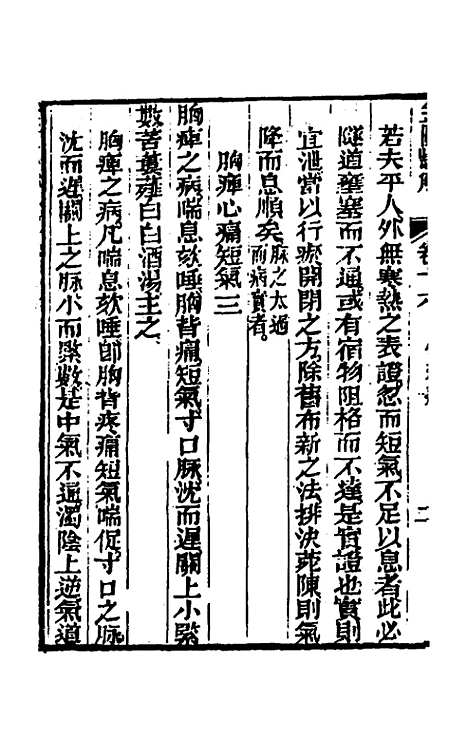 若夫平人外無寒熱之表證忽而短氣不足以息者此必
隧道壅塞而不通或有宿物阻格而不達是實證也實則
宜泄當以行瘀開閉之方除舊布新之法排決菀陳則氣
降而息順矣脉之太過而病實者。
胸痺心痛短氣三
胸痺之病喘息欬唾胸背痛短氣寸口脉沈而遲關上小緊
數苦蔞薤白白酒湯主之
胸痺之病凡喘息欬唾卽胸背疼痛短氣喘促寸口之脉
沈而遲關上之脉小而緊數是中氣不通濁陰上逆氣道